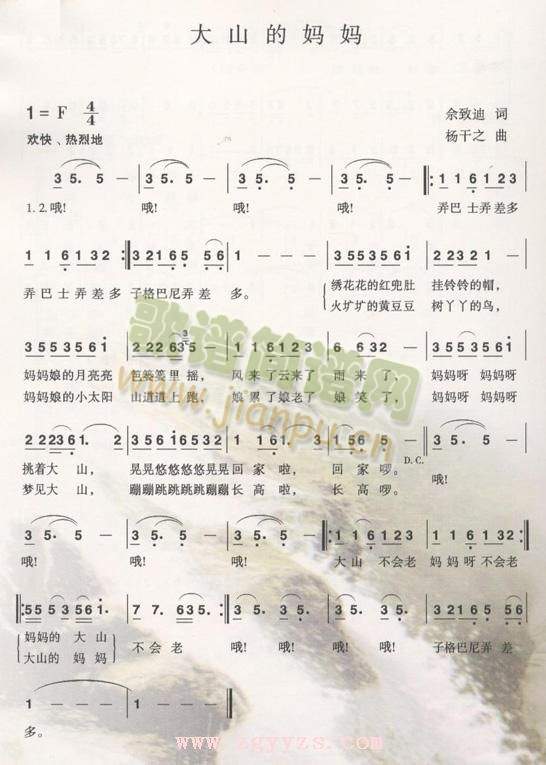 大山的妈妈
1=F 4/4
佘致迪 词
欢快、热烈地
杨干之 曲
3 5. 5 — 3 5. 5 — 3 5. 5 — 3 5. 5 — 1 1 6 1 2 3
1.2.哦! 哦! 哦! 哦! 弄巴士弄差多
1 1 6 1 3 2 3 2 1 6 5 5 6 1 — — 3 5 5 3 5 6 1 2 2 3 2 1
弄巴士弄差多 子格巴尼弄差 多。 绣花花的红兜肚 挂铃铃的帽,
火圹圹的黄豆豆 树丫丫的鸟,
3 5 5 3 5 6 1 2 2 2 6 3 5 1 1 6 1 2 3 6 6 3 2 — 3 5 5 3 5 6 1
妈妈娘的月亮亮 包篓篓里摇, 风来了云来了 雨来了, 妈妈呀 妈妈呀
妈妈娘的小太阳 山道道上跑, 娘累了娘老了 娘笑了, 妈妈呀 妈妈呀
2 2 2 3 6 1. 2 — 3 5 6 1 6 5 3 5 1 1 6 1. 3 1 5 6 5 — D.C. 3 5. 5 —
挑着大山, 晃晃悠悠悠悠晃晃 回家啦, 回家啰。 哦!
梦见大山, 蹦蹦跳跳跳跳蹦蹦 长高啦, 长高啰。
3 5. 5 — 3 5. 5 — 3 5. 5 — 1 1 6 1 2 3 1 1 6 1 3 2
哦! 哦! 哦! 大山 不会老 妈妈呀不会老
5 5 5 3 5 6 1. 7 7. 6 3 5. 3 5. 5 — 3 5. 5 — 3 2 1 6 5 5 6
妈妈的 大山 不会老 哦! 哦! 哦! 子格巴尼弄差
大山的 妈妈
1 — — 1 — —
多。
歌谱简谱网
www.jianpu.cn
www.zgyyzs.com